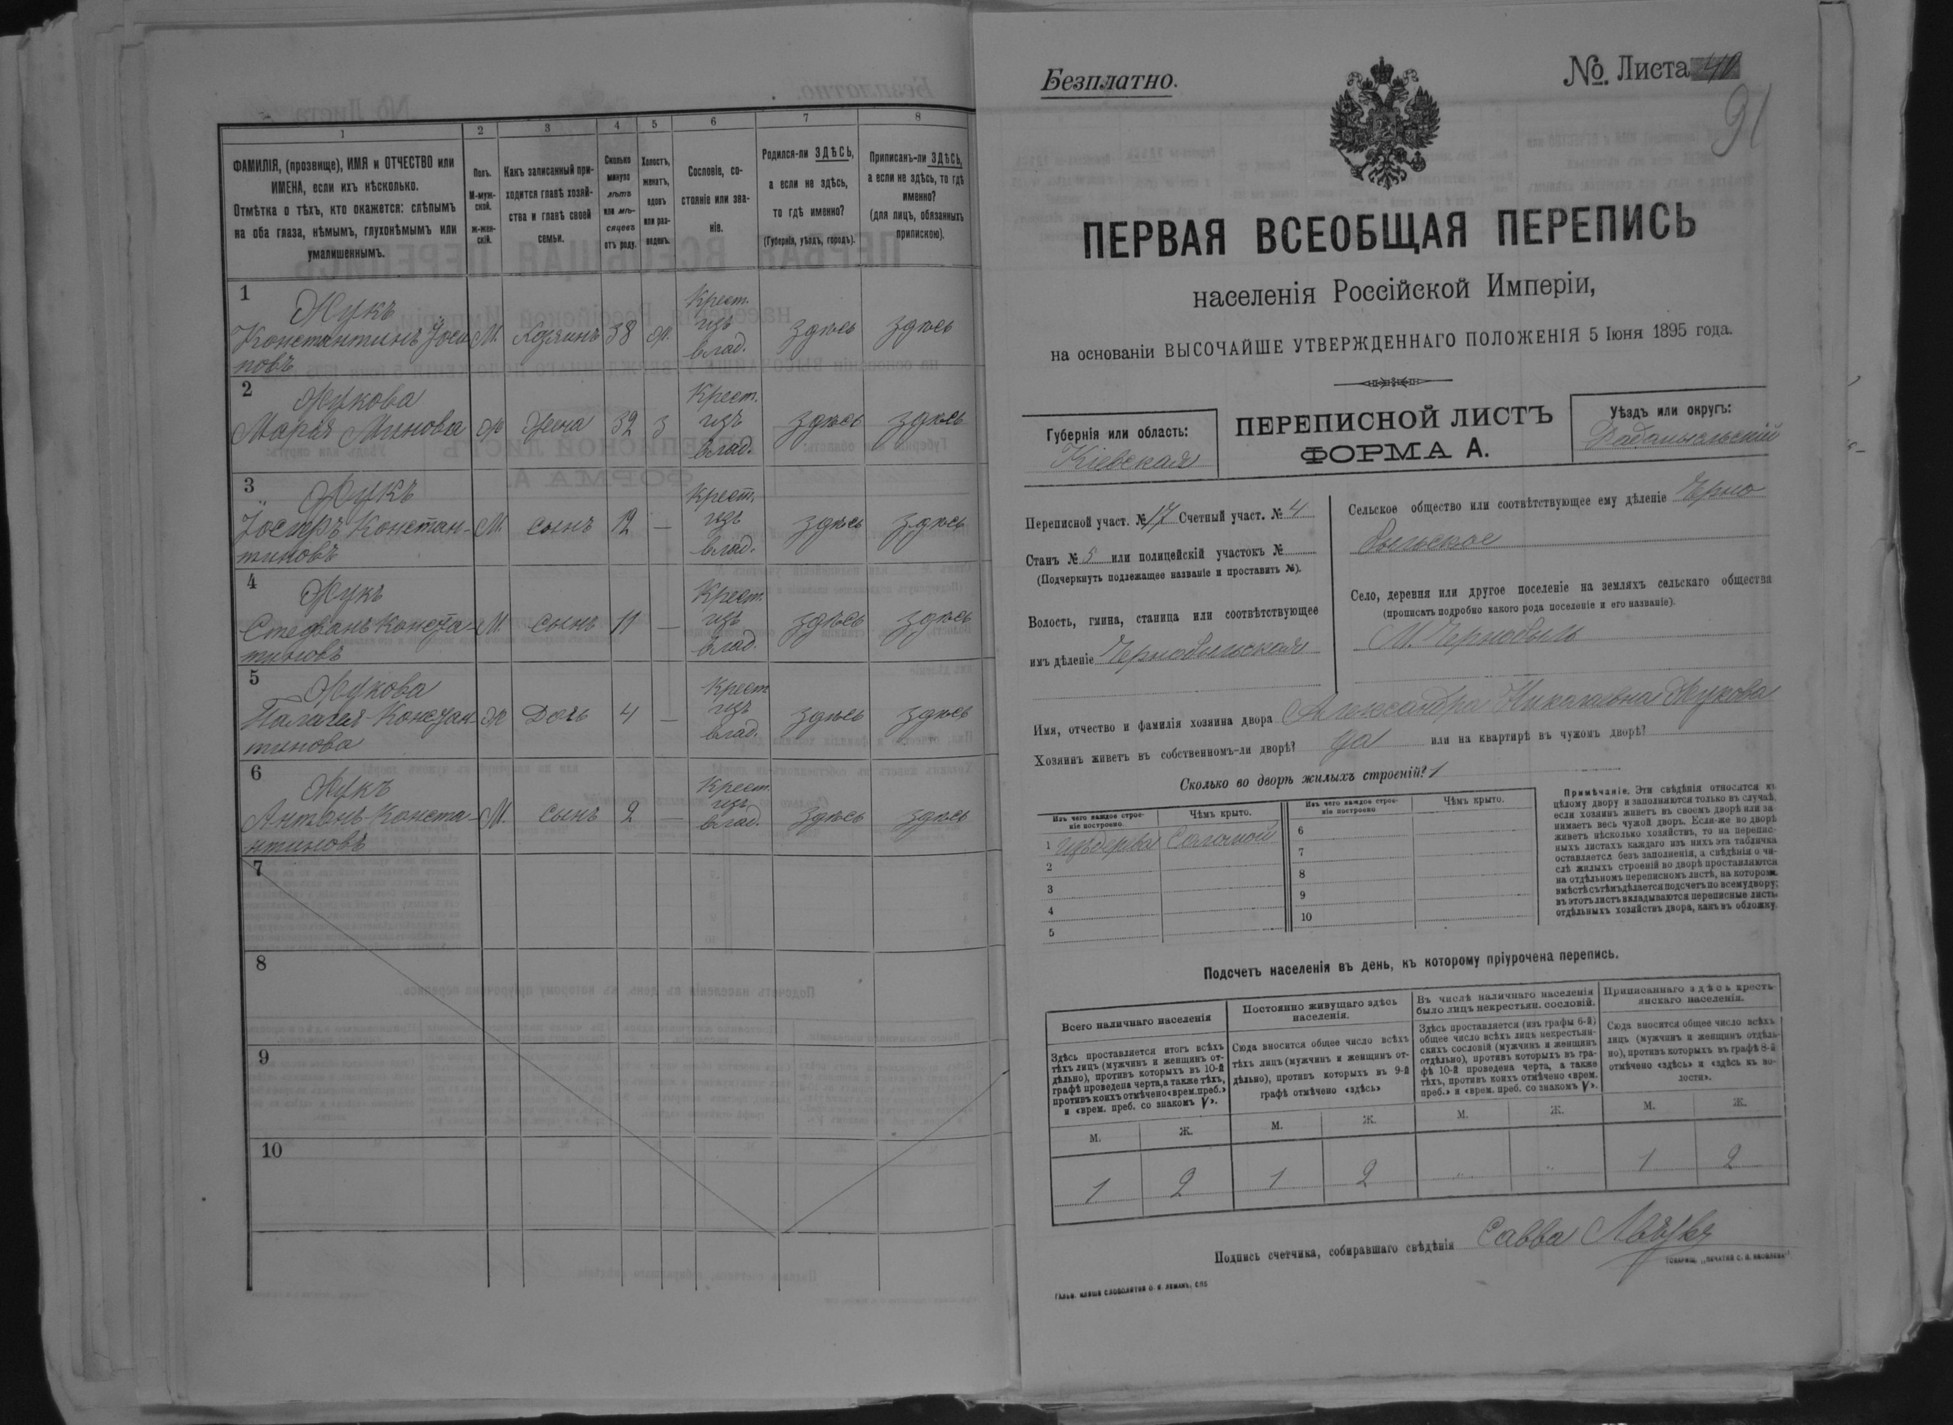 1
2
3
4
5
6
7
8
ФАМИЛІЯ, (прозвище), ИМЯ и ОТЧЕСТВО или
ИМЕНА, если ихъ нѣсколько.
Отмѣтка о тѣхъ, кто окажется: слѣпымъ
на оба глаза, нѣмымъ, глухонѣмымъ или
умалишеннымъ.
Полъ.
М-муж-
ской.
ж-жен-
скій.
Какъ записанный при-
ходится главѣ хозяй-
ства и главѣ своей
семьи.
Сколько
минуло
лѣтъ
или мѣ-
сяцевъ
отъ роду.
Холостъ,
женатъ,
вдовъ
или раз-
веденъ.
Сословіе, со-
стояніе или зва-
ніе.
Родился-ли ЗДѢСЬ,
а если не здѣсь,
то гдѣ именно?
(Губернія, уѣздъ, городъ).
Приписанъ-ли ЗДѢСЬ,
а если не здѣсь, то гдѣ
именно?
(для лицъ, обязанныхъ
припискою).
1
Жукъ
Константинъ Іоси
повъ
М.
Хозяинъ
38
ж.
Крест.
изъ
влад.
здѣсь
здѣсь
2
Жукова
Марья Минова
ж
Жена
32
з
Крест.
изъ
влад.
здѣсь
здѣсь
3
Жукъ
Іосифъ Констан-
тиновъ
М.
сынъ
12
—
Крест.
изъ
влад.
здѣсь
здѣсь
4
Жукъ
Стефанъ Конста-
нтиновъ
М.
сынъ
11
—
Крест.
изъ
влад.
здѣсь
здѣсь
5
Жукова
Палагея Констан-
тинова
ж
Дочь
4
—
Крест.
изъ
влад.
здѣсь
здѣсь
6
Жукъ
Антонъ Конста-
нтиновъ
М.
сынъ
2
—
Крест.
изъ
влад.
здѣсь
здѣсь
7
8
9
10
Безплатно.
№ Листа 40
91
ПЕРВАЯ ВСЕОБЩАЯ ПЕРЕПИСЬ
населенія Россійской Имперіи,
на основаніи ВЫСОЧАЙШЕ УТВЕРЖДЕННАГО ПОЛОЖЕНІЯ 5 Іюня 1895 года.
Губернія или область:
Кіевская
ПЕРЕПИСНОЙ ЛИСТЪ
ФОРМА А.
Уѣздъ или округъ:
Радомысльскій
Переписной участ. № 17 Счетный участ. № 4
Станъ № 5 или полицейскій участокъ №
(Подчеркнуть подлежащее названіе и проставить №).
Волость, гмина, станица или соотвѣтствующее
имъ дѣленіе Чернобыльская
Сельское общество или соотвѣтствующее ему дѣленіе Черно
быльское
Село, деревня или другое поселеніе на земляхъ сельскаго общества
(прописать подробно какого рода поселеніе и его названіе).
М. Чернобыль
Имя, отчество и фамилія хозяина двора Александра Николаевна Жукова
Хозяинъ живетъ въ собственномъ-ли дворѣ? да или на квартирѣ въ чужомъ дворѣ?
Сколько во дворѣ жилыхъ строеній? 1
Изъ чего каждое строе-
ніе построено.
Чѣмъ крыто.
Изъ чего каждое строе-
ніе построено
Чѣмъ крыто.
1 Изъ дерева Соломой
2
3
4
5
6
7
8
9
10
Примѣчаніе. Эти свѣдѣнія относятся къ
цѣлому двору и заполняются только въ случаѣ,
если хозяинъ живетъ въ своемъ дворѣ или за-
нимаетъ весь чужой дворъ. Если-же во дворѣ
живетъ нѣсколько хозяйствъ, то на перепис-
ныхъ листахъ каждаго изъ нихъ эта табличка
оставляется безъ заполненія, а свѣдѣнія о чи-
слѣ жилыхъ строеній во дворѣ проставляются
на отдѣльномъ переписномъ листѣ, на которомъ
вмѣстѣ съ тѣмъ дѣлается подсчетъ по всему двору;
въ этотъ листъ вкладываются переписные листы
отдѣльныхъ хозяйствъ двора, какъ въ обложку.
Подсчетъ населенія въ день, къ которому пріурочена перепись.
Всего наличнаго населенія
Здѣсь проставляется итогъ всѣхъ
тѣхъ лицъ (мужчинъ и женщинъ от-
дѣльно), противъ которыхъ въ 10-й
графѣ проведена черта, а также тѣхъ,
противъ коихъ отмѣчено «врем. преб.»
и «врем. преб. со знакомъ V».
Постоянно живущаго здѣсь
населенія.
Сюда вносится общее число всѣхъ
тѣхъ лицъ (мужчинъ и женщинъ от-
дѣльно), противъ которыхъ въ 9-й
графѣ отмѣчено «здѣсь»
Въ числѣ наличнаго населенія
было лицъ некрестьян. сословій.
Здѣсь проставляется (изъ графы 6-й)
общее число всѣхъ лицъ некрестьян-
скихъ сословій (мужчинъ и женщинъ
отдѣльно), противъ которыхъ въ гра-
фѣ 10-й проведена черта, а также
тѣхъ, противъ коихъ отмѣчено «врем.
преб.» и «врем. преб. со знакомъ V».
Приписаннаго здѣсь кресть-
янскаго населенія.
Сюда вносится общее число всѣхъ
лицъ (мужчинъ и женщинъ отдѣль-
но), противъ которыхъ въ графѣ 8-й
отмѣчено «здѣсь» и «здѣсь въ во-
лости».
М. Ж. М. Ж. М. Ж. М. Ж.
1 2 1 2 " " 1 2
Подпись счетчика, собиравшаго свѣдѣнія Савва